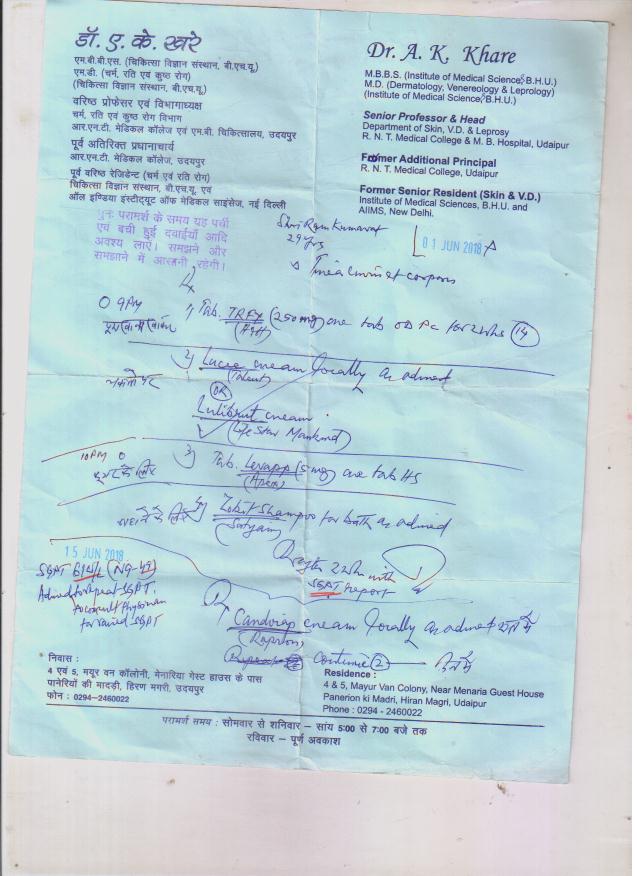 डॉ. ए. के. खरे
एम.बी.बी.एस. (चिकित्सा विज्ञान संस्थान, बी.एच.यू.)
एम.डी. (चर्म, रति एवं कुष्ठ रोग)
(चिकित्सा विज्ञान संस्थान, बी.एच.यू.)
वरिष्ठ प्रोफेसर एवं विभागाध्यक्ष
चर्म, रति एवं कुष्ठ रोग विभाग
आर.एन.टी. मेडिकल कॉलेज एवं एम.बी. चिकित्सालय, उदयपुर
पूर्व अतिरिक्त प्रधानाचार्य
आर.एन.टी. मेडिकल कॉलेज, उदयपुर
पूर्व वरिष्ठ रेजिडेन्ट (चर्म एवं रति रोग)
चिकित्सा विज्ञान संस्थान, बी.एच.यू. एवं
ऑल इण्डिया इंस्टीट्यूट ऑफ मेडिकल साइंसेज, नई दिल्ली
Dr. A. K. Khare
M.B.B.S. (Institute of Medical Science, B.H.U.)
M.D. (Dermatology, Venereology & Leprology)
(Institute of Medical Science, B.H.U.)
Senior Professor & Head
Department of Skin, V.D. & Leprosy
R. N. T. Medical College & M. B. Hospital, Udaipur
Former Additional Principal
R. N. T. Medical College, Udaipur
Former Senior Resident (Skin & V.D.)
Institute of Medical Sciences, B.H.U. and
AIIMS, New Delhi.
पुनः परामर्श के समय यह पर्ची
एवं बची हुई दवाईयाँ आदि
अवश्य लाएं। समझने और
समझाने में आसानी रहेगी।
Shri Ram Kumawat
29 Yrs
01 JUN 2018
Tinea cruris et corporis
Rx
9 PM
1) Tab. (250 mg) one tab OD PC for 2 wks (14)
2) cream locally as advised
OR
cream
(Lifestar Mankind)
10 PM
3) Tab. (5 mg) one tab HS
नहाने के लिए
4) Shampoo for bath as advised
(Satyam)
15 JUN 2018
R after 2 wks with
SGPT report
SGPT
Advised to repeat SGPT.
To consult Physician
for raised SGPT
Rx
cream locally as advised
Continue (2)
निवास :
4 एवं 5, मयूर वन कॉलोनी, मेनारिया गेस्ट हाउस के पास
पानेरियों की मादड़ी, हिरण मगरी, उदयपुर
फोन : 0294-2460022
Residence :
4 & 5, Mayur Van Colony, Near Menaria Guest House
Panerion ki Madri, Hiran Magri, Udaipur
Phone : 0294 - 2460022
परामर्श समय : सोमवार से शनिवार – सांय 5:00 से 7:00 बजे तक
रविवार – पूर्ण अवकाश